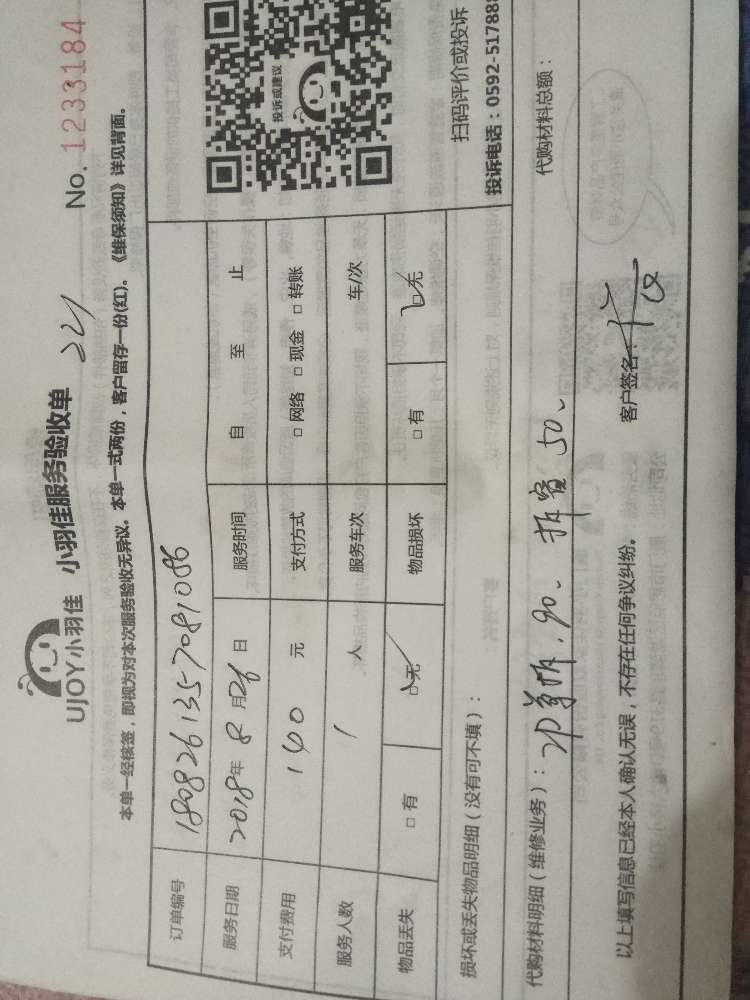 UJOY小羽佳 小羽佳服务验收单 221 No. 1233184
本单一经核签，即视为对本次服务验收无异议。本单一式两份，客户留存一份(红)。《维保须知》详见背面。
订单编号 1808261357081086
服务日期 2018年 8月26日 服务时间 自 至 止
支付费用 140 元 支付方式 □ 网络 □ 现金 □ 转账
服务人数 1 人 服务车次 车/次
物品丢失 □ 有 □ 无 物品损坏 □ 有 □ 无
损坏或丢失物品明细（没有可不填）：
投诉或建议
扫码评价或投诉
投诉电话：0592-51788
代购材料明细（维修业务）： 90、 50、 代购材料总额：
以上填写信息已经本人确认无误，不存在任何争议纠纷。 客户签名：